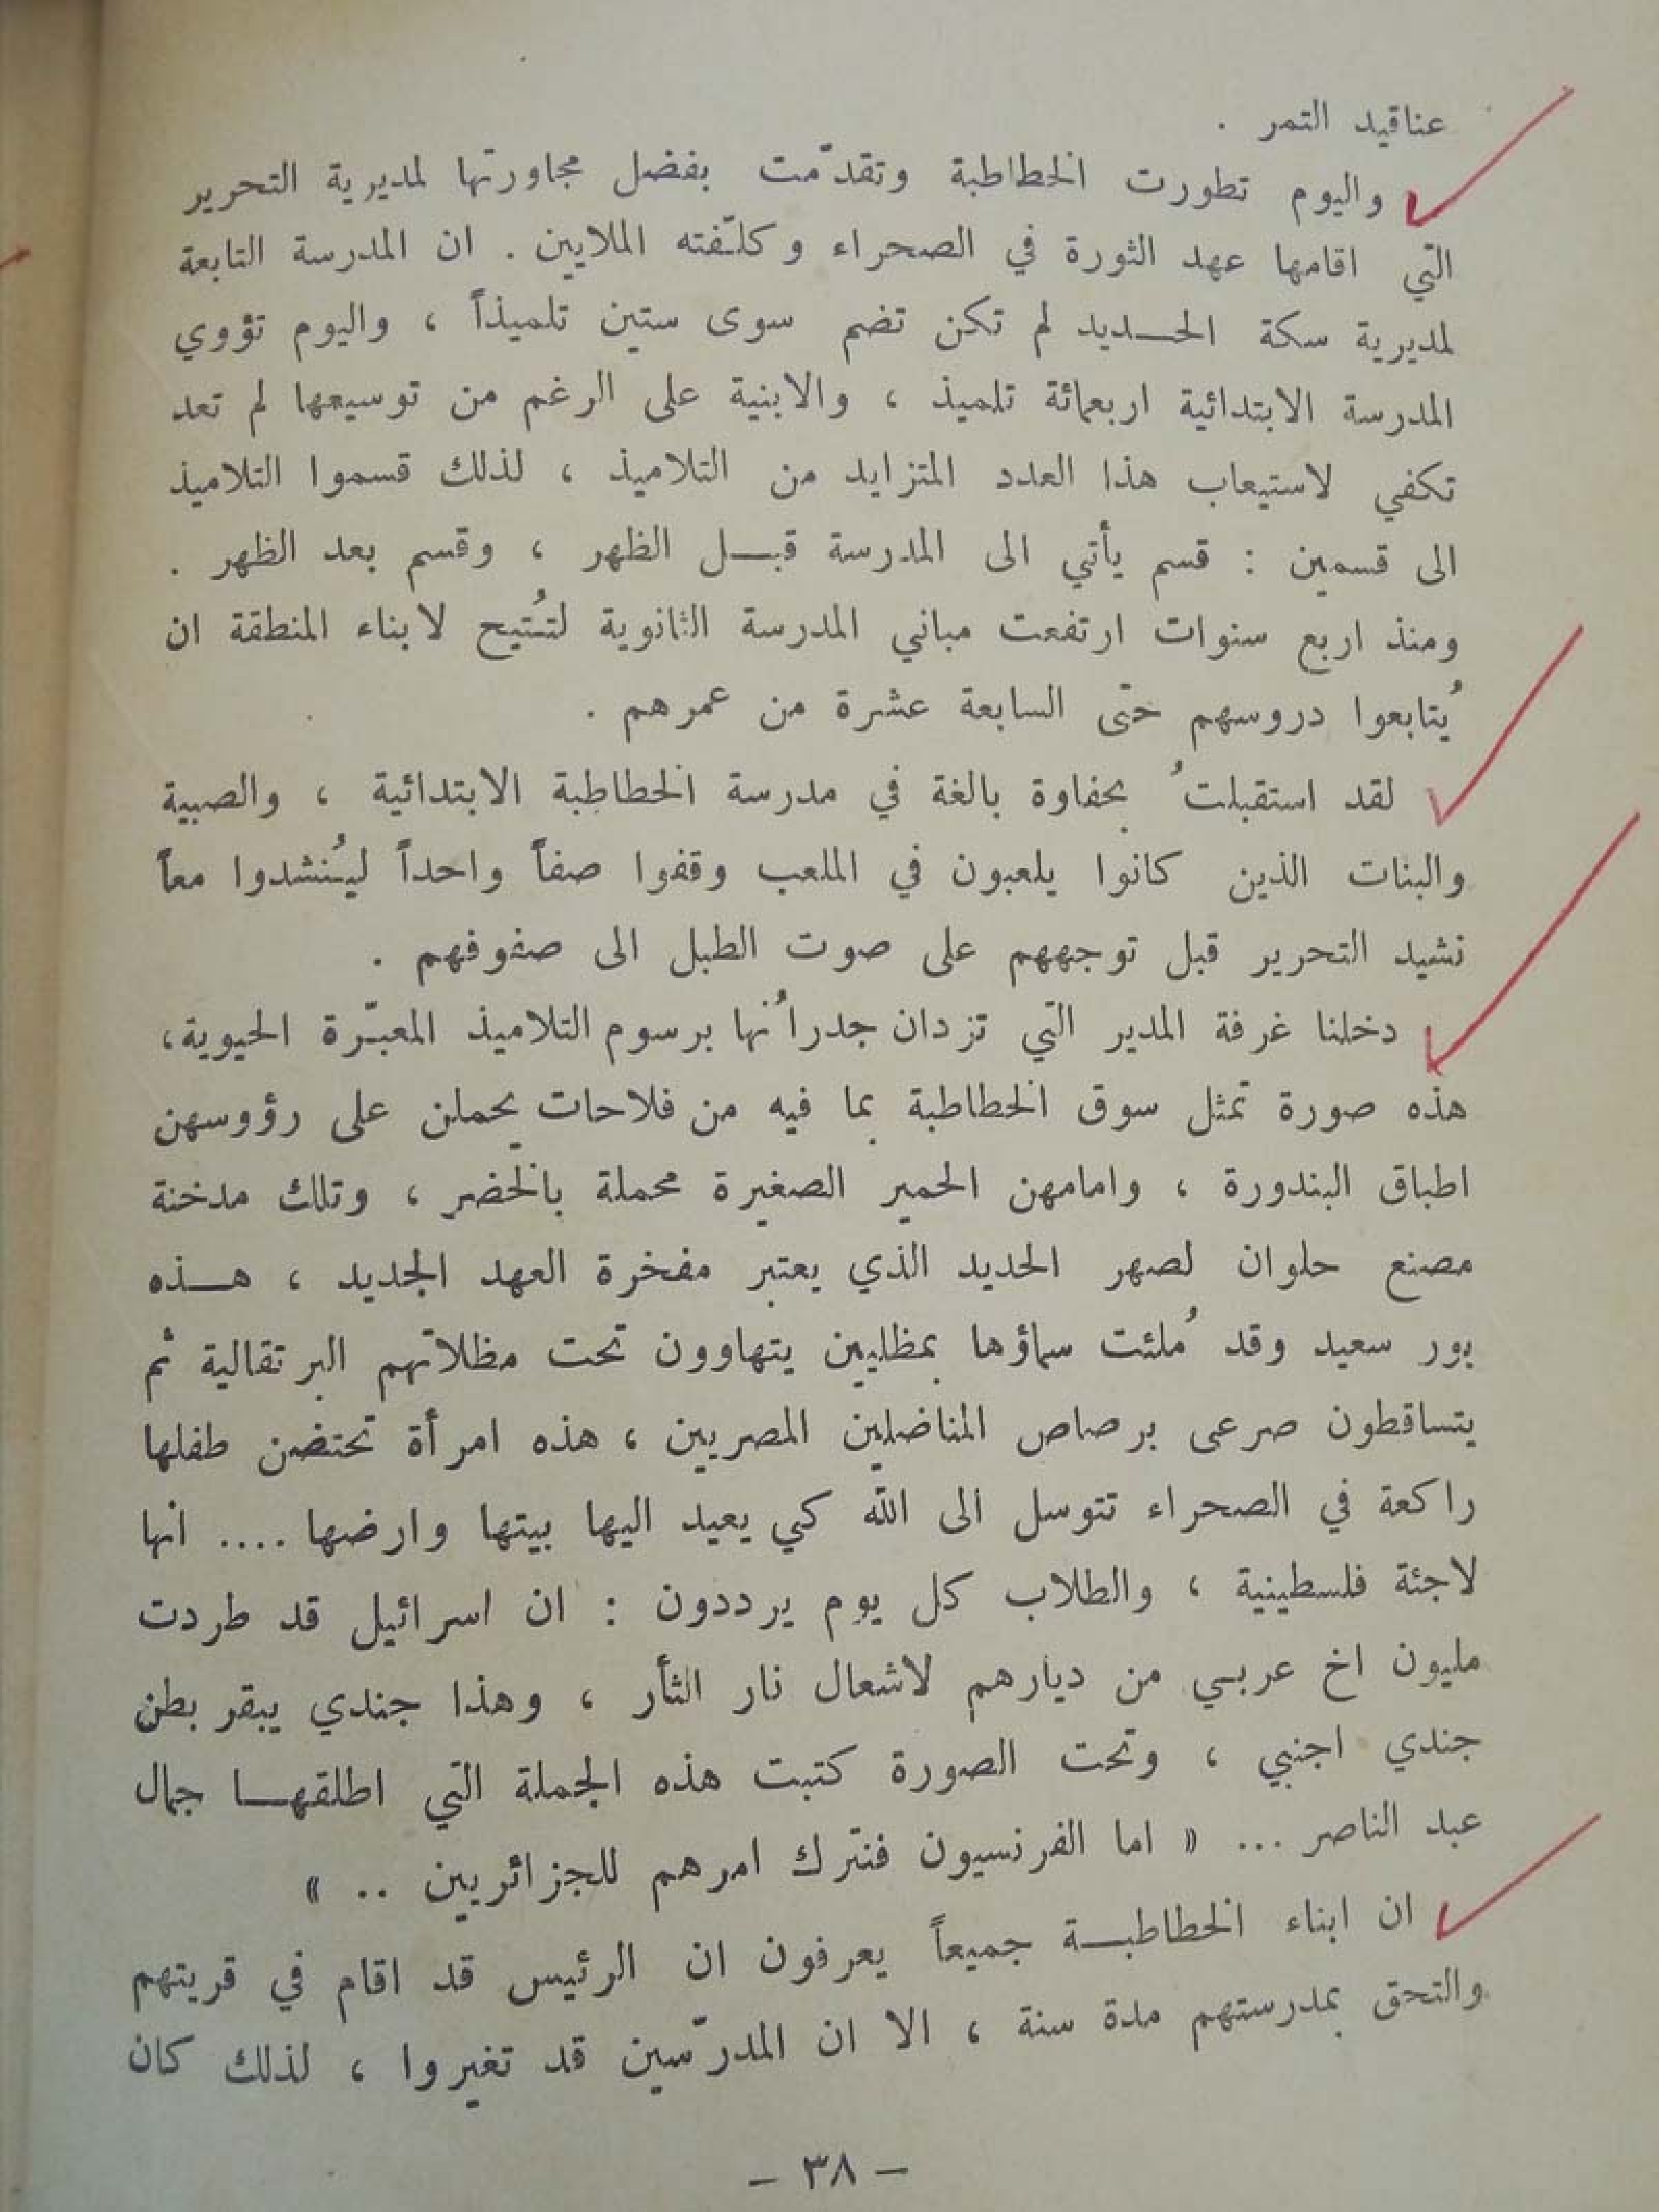 عناقيد التمر .
واليوم تطورت الخطاطبة وتقدّمت بفضل مجاورتها لمديرية التحرير
التي اقامها عهد الثورة في الصحراء وكلّفته الملايين . ان المدرسة التابعة
لمديرية سكة الحـديد لم تكن تضم سوى ستين تلميذاً ، واليوم تؤوي
المدرسة الابتدائية اربعمائة تلميذ ، والابنية على الرغم من توسيعها لم تعد
تكفي لاستيعاب هذا العدد المتزايد من التلاميذ ، لذلك قسموا التلاميذ
الى قسمين : قسم يأتي الى المدرسة قبـل الظهر ، وقسم بعد الظهر .
ومنذ اربع سنوات ارتفعت مباني المدرسة الثانوية لتُتيح لابناء المنطقة ان
يُتابعوا دروسهم حتى السابعة عشرة من عمرهم .
لقد استقبلتُ بحفاوة بالغة في مدرسة الخطاطبة الابتدائية ، والصبية
والبنات الذين كانوا يلعبون في الملعب وقفوا صفاً واحداً ليُنشدوا معاً
نشيد التحرير قبل توجههم على صوت الطبل الى صفوفهم .
دخلنا غرفة المدير التي تزدان جدرانُها برسوم التلاميذ المعبّرة الحيوية،
هذه صورة تمثل سوق الخطاطبة بما فيه من فلاحات يحملن على رؤوسهن
اطباق البندورة ، وامامهن الحمير الصغيرة محملة بالخضر ، وتلك مدخنة
مصنع حلوان لصهر الحديد الذي يعتبر مفخرة العهد الجديد ، هـذه
بور سعيد وقد مُلئت سماؤها بمظليين يتهاوون تحت مظلاتهم البرتقالية ثم
يتساقطون صرعى برصاص المناضلين المصريين ، هذه امرأة تحتضن طفلها
راكعة في الصحراء تتوسل الى الله كي يعيد اليها بيتها وارضها .... انها
لاجئة فلسطينية ، والطلاب كل يوم يرددون : ان اسرائيل قد طردت
مليون اخ عربي من ديارهم لاشعال نار الثأر ، وهذا جندي يبقر بطن
جندي اجنبي ، وتحت الصورة كتبت هذه الجملة التي اطلقهـا جمال
عبد الناصر ... « اما الفرنسيون فنترك امرهم للجزائريين .. »
ان ابناء الخطاطبـة جميعاً يعرفون ان الرئيس قد اقام في قريتهم
والتحق بمدرستهم مدة سنة ، الا ان المدرّسين قد تغيروا ، لذلك كان
- ٣٨ -